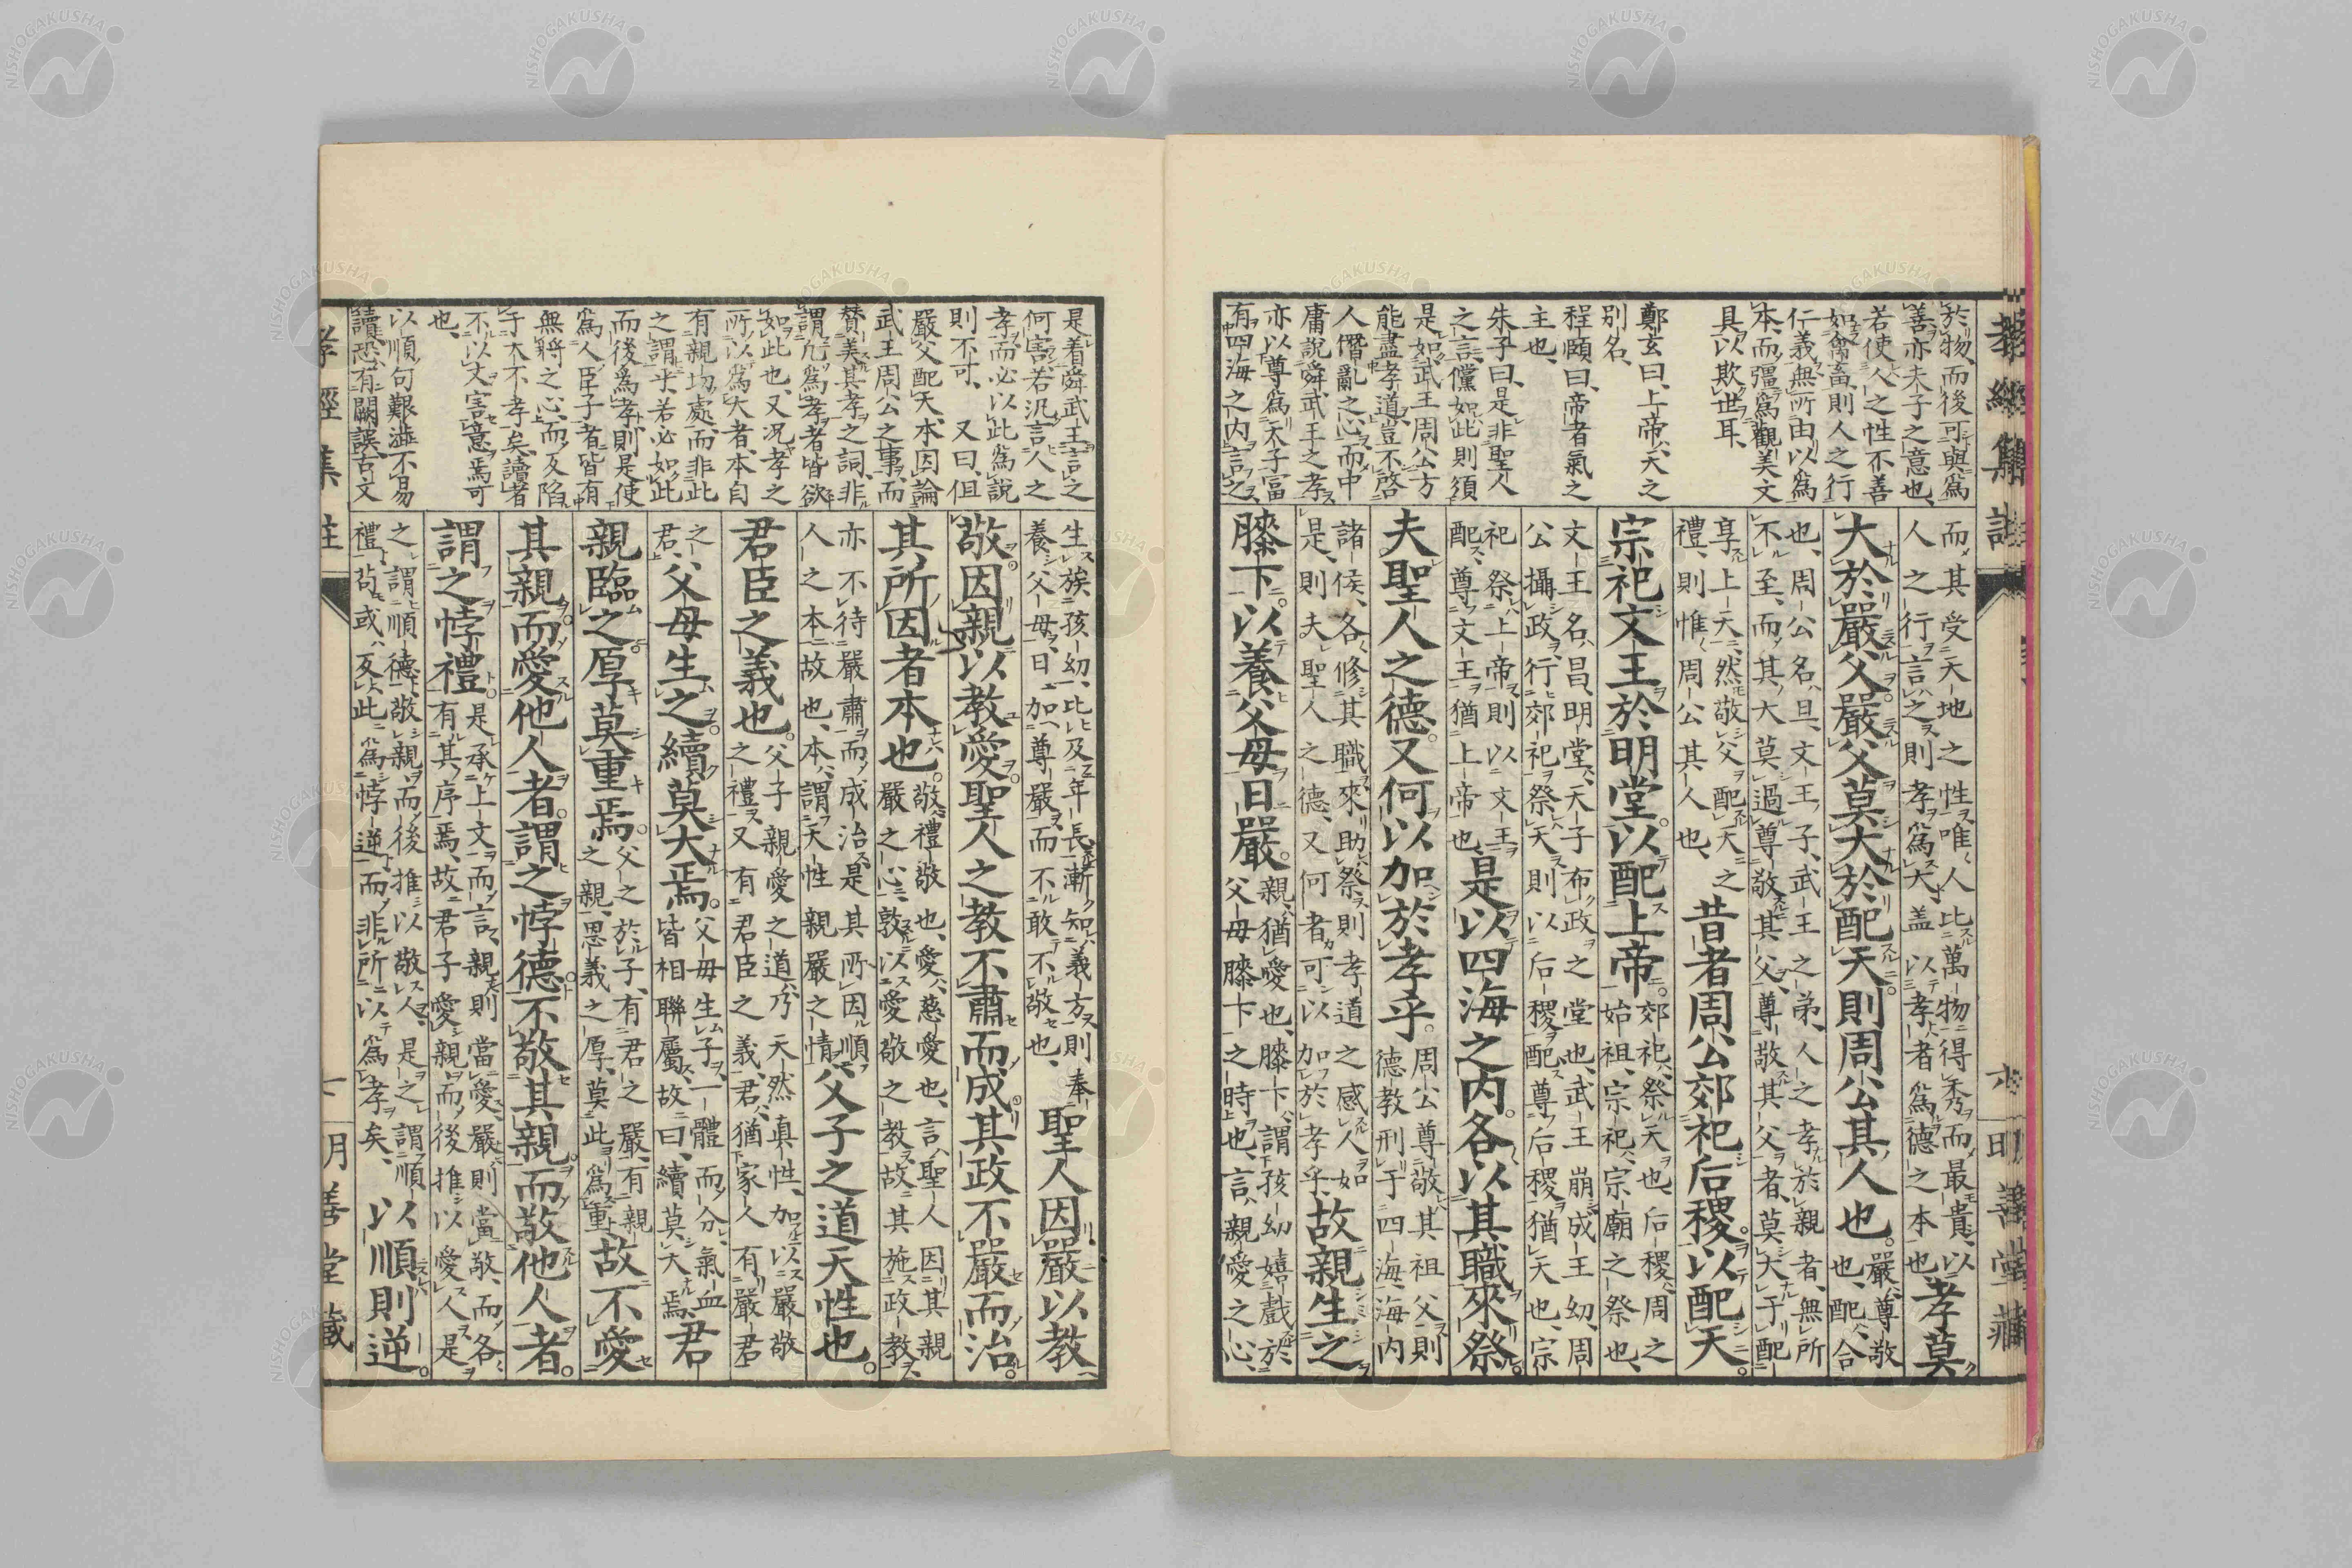 孝經集註
六
明善堂藏
於物、而後可與爲
善、亦夫子之意也、
若使人之性不善
如禽畜、則人之行
仁義、無所由以爲
本、而彊爲觀美文
具以欺世耳、
鄭玄曰、上帝、天之
別名、
程頤曰、帝者氣之
主也、
朱子曰、是非聖人
之言、儻如此則須
是如武王周公方
能盡孝道、豈不啓
人僭亂之心、而中
庸說舜武王之孝
亦以尊爲天子富
有四海之内言之
而其受天地之性、唯人比萬物得秀而最貴、以
人之行言之、則孝爲大、盖以孝者爲德之本也
孝莫
大於嚴父。嚴父莫大於配天。則周公其人也。
嚴、尊敬
也、配、合
也、周公名旦、文王子、武王之弟、人之孝於親者、無所
不至、而其大莫過尊敬其父、尊敬其父者、莫大于配
享上天、然敬父配天之
禮、則惟周公其人也、
昔者周公郊祀后稷。以配天。
宗祀文王於明堂。以配上帝。
郊祀、祭天也、后稷、周之
始祖、宗祀、宗廟之祭也、
文王名昌、明堂、天子布政之堂也、武王崩成王幼、周
公攝政、行郊祀祭天、則以后稷配、尊后稷猶天也、宗
祀祭上帝、則以文王
配、尊文王猶上帝也、
是以四海之内。各以其職來祭。
夫聖人之德。又何以加於孝乎。
周公尊敬其祖父、則
德教刑于四海、海内
諸侯、各修其職、來助祭、則孝道之感人如
是、則夫聖人之德、又何者可以加於孝乎、
故親生之
膝下。以養父母日嚴。
親、猶愛也、膝下、謂孩幼嬉戲於
父母膝下之時也、言、親愛之心、
是着舜武王言之
何害、若汎言人之
孝、而必以此爲說
則不可、 又曰、但
嚴父配天、本因論
武王周公之事、而
贊美其孝之詞、非
謂凡爲孝者皆欲
如此也、又况孝之
所以爲大者、本自
有親切處、而非此
之謂乎、若必如此
而後爲孝、則是使
爲人臣子者、皆有
無將之心、而反陷
于大不孝矣、讀者
不以文害意焉可
也、
以順句艱澁不易
讀、恐有闕誤、古文
生旄孩幼、比及年長漸知義方、則奉
養父母、日加尊嚴、而不敢不敬也、
聖人因嚴以教
敬。因親以教愛。聖人之教不肅而成。其政不嚴而治。
其所因者本也。
敬、禮敬也、愛、慈愛也、言聖人因其親
嚴之心、敦以愛敬之教、故其施政教、
亦不待嚴肅、而成治、是其所因順
人之本故也、本、謂天性親嚴之情、
父子之道天性也。
君臣之義也。
父子親愛之道、乃天然真性、加以嚴敬
之禮、又有君臣之義、君、猶家人有嚴君
之
君、
父母生之。續莫大焉。
父母生子、一體而分、氣血
皆相聯屬、故曰、續莫大焉、
君
親臨之。厚莫重焉。
父之於子、有君之嚴、有親
之親、恩義之厚、莫此爲重、
故不愛
其親。而愛他人者。謂之悖德。不敬其親。而敬他人者。
謂之悖禮。
是承上文而言、親則當愛、嚴則當敬、而各
有其序焉、故君子愛親、而後推以愛人、是
之謂順德、敬親、而後推以敬人、是之謂順
禮、苟或反此、爲悖逆、而非所以爲孝矣、
以順則逆。
孝經集註
七
明善堂藏
NISHOGAKUSHA